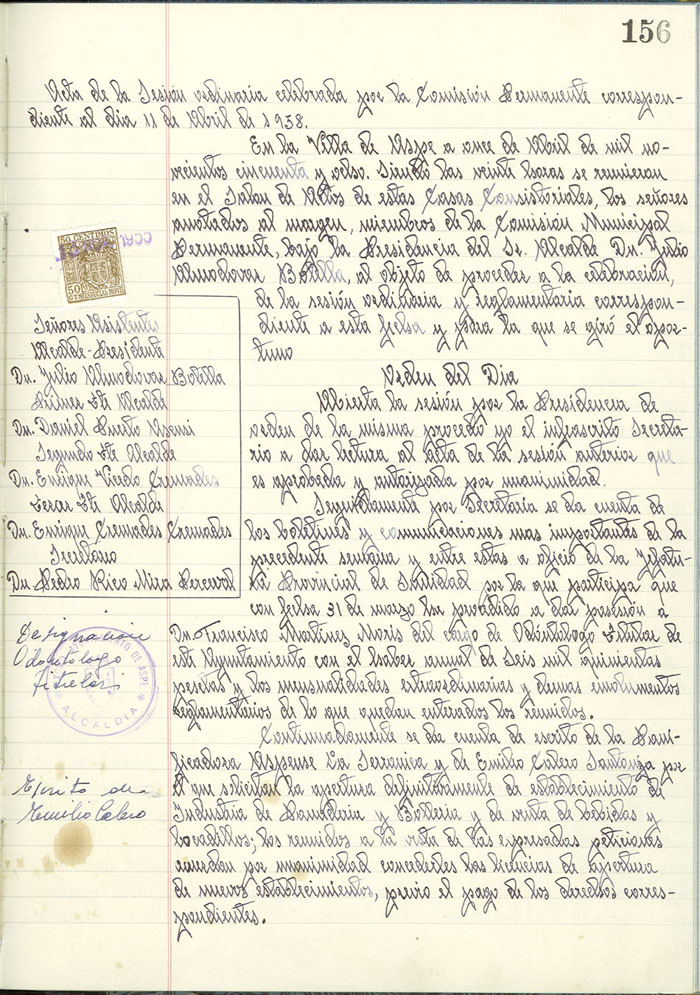 156
Acta de la Sesión ordinaria celebrada por la Comisión Permanente correspon-
diente al día 11 de Abril de 1958.
En la Villa de Aspe a once de Abril de mil no-
vecientos cincuenta y ocho. Siendo las veinte horas se reunieron
en el Salon de Actos de estas Casas Consistoriales, los señores
anotados al margen, miembros de la Comisión Municipal
Permanente, bajo la Presidencia del Sr. Alcalde Dn. Julio
Almodovar Botella, al objeto de proceder a la celebracion,
de la sesión ordinaria y reglamentaria correspon-
diente a esta fecha y para la que se giró el opor-
tuno
50 CENTIMOS
50
Señores Asistentes
Alcalde-Presidente
Dn. Julio Almodovar Botella
Primer Tte Alcalde
Dn. Daniel Puerto
Segundo Tte Alcalde
Dn. Enrique Vicedo Cremades
Tercer Tte Alcalde
Dn. Enrique Cremades Cremades
Secretario
Dn. Pedro Rico Mira Perceval
Orden del Dia
Abierta la sesión por la Presidencia de
orden de la misma procedo yo el infrascrito Secreta-
rio a dar lectura al acta de la sesión anterior que
es aprobada y autorizada por unanimidad.
Seguidamente por Secretaria se da cuenta de
los boletines y comunicaciones mas importantes de la
precedente semana y entre estas a oficio de la Jefatu-
ra Provincial de Sanidad por la que participa que
con fecha 31 de marzo ha procedido a dar posesión a
Dn. Francisco Martinez Moris del cargo de Odontólogo Titular de
este Ayuntamiento con el haber anual de Seis mil quinientas
pesetas y dos mensualidades extraordinarias y demas emolumentos
reglamentarios de lo que quedan enterados los reunidos.
Designacion
Odontologo
titular
AYUNTAMIENTO DE ASPE
ALCALDIA
Continuadamente se da cuenta de escrito de la Pani-
ficadora Aspense La Serranica y de Emilio Calero Santonja por
el que solicitan la apertura definitivamente de establecimiento de
Industria de Panaderia y Bolleria y de venta de bebidas y
bocadillos; los reunidos a la vista de las expresadas peticiones
acuerdan por unanimidad concederles las licencias de apertura
de nuevos establecimientos, previo el pago de los derechos corres-
pondientes.
Escrito de
Emilio Calero